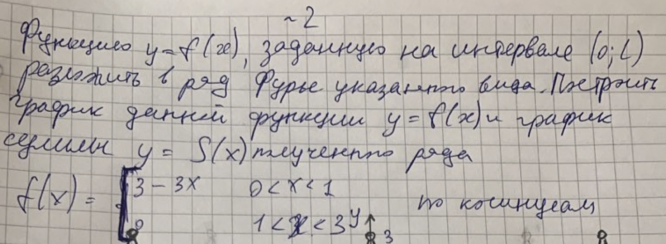 ~2
Функцию y=f(x), заданную на интервале (0; L)
разложить в ряд Фурье указанного вида. Построить
график данной функции y=f(x) и график
суммы y = S(x) полученного ряда
f(x) = [ 3 - 3x 0 < x < 1 по косинусам
1 < x < 3 y
3